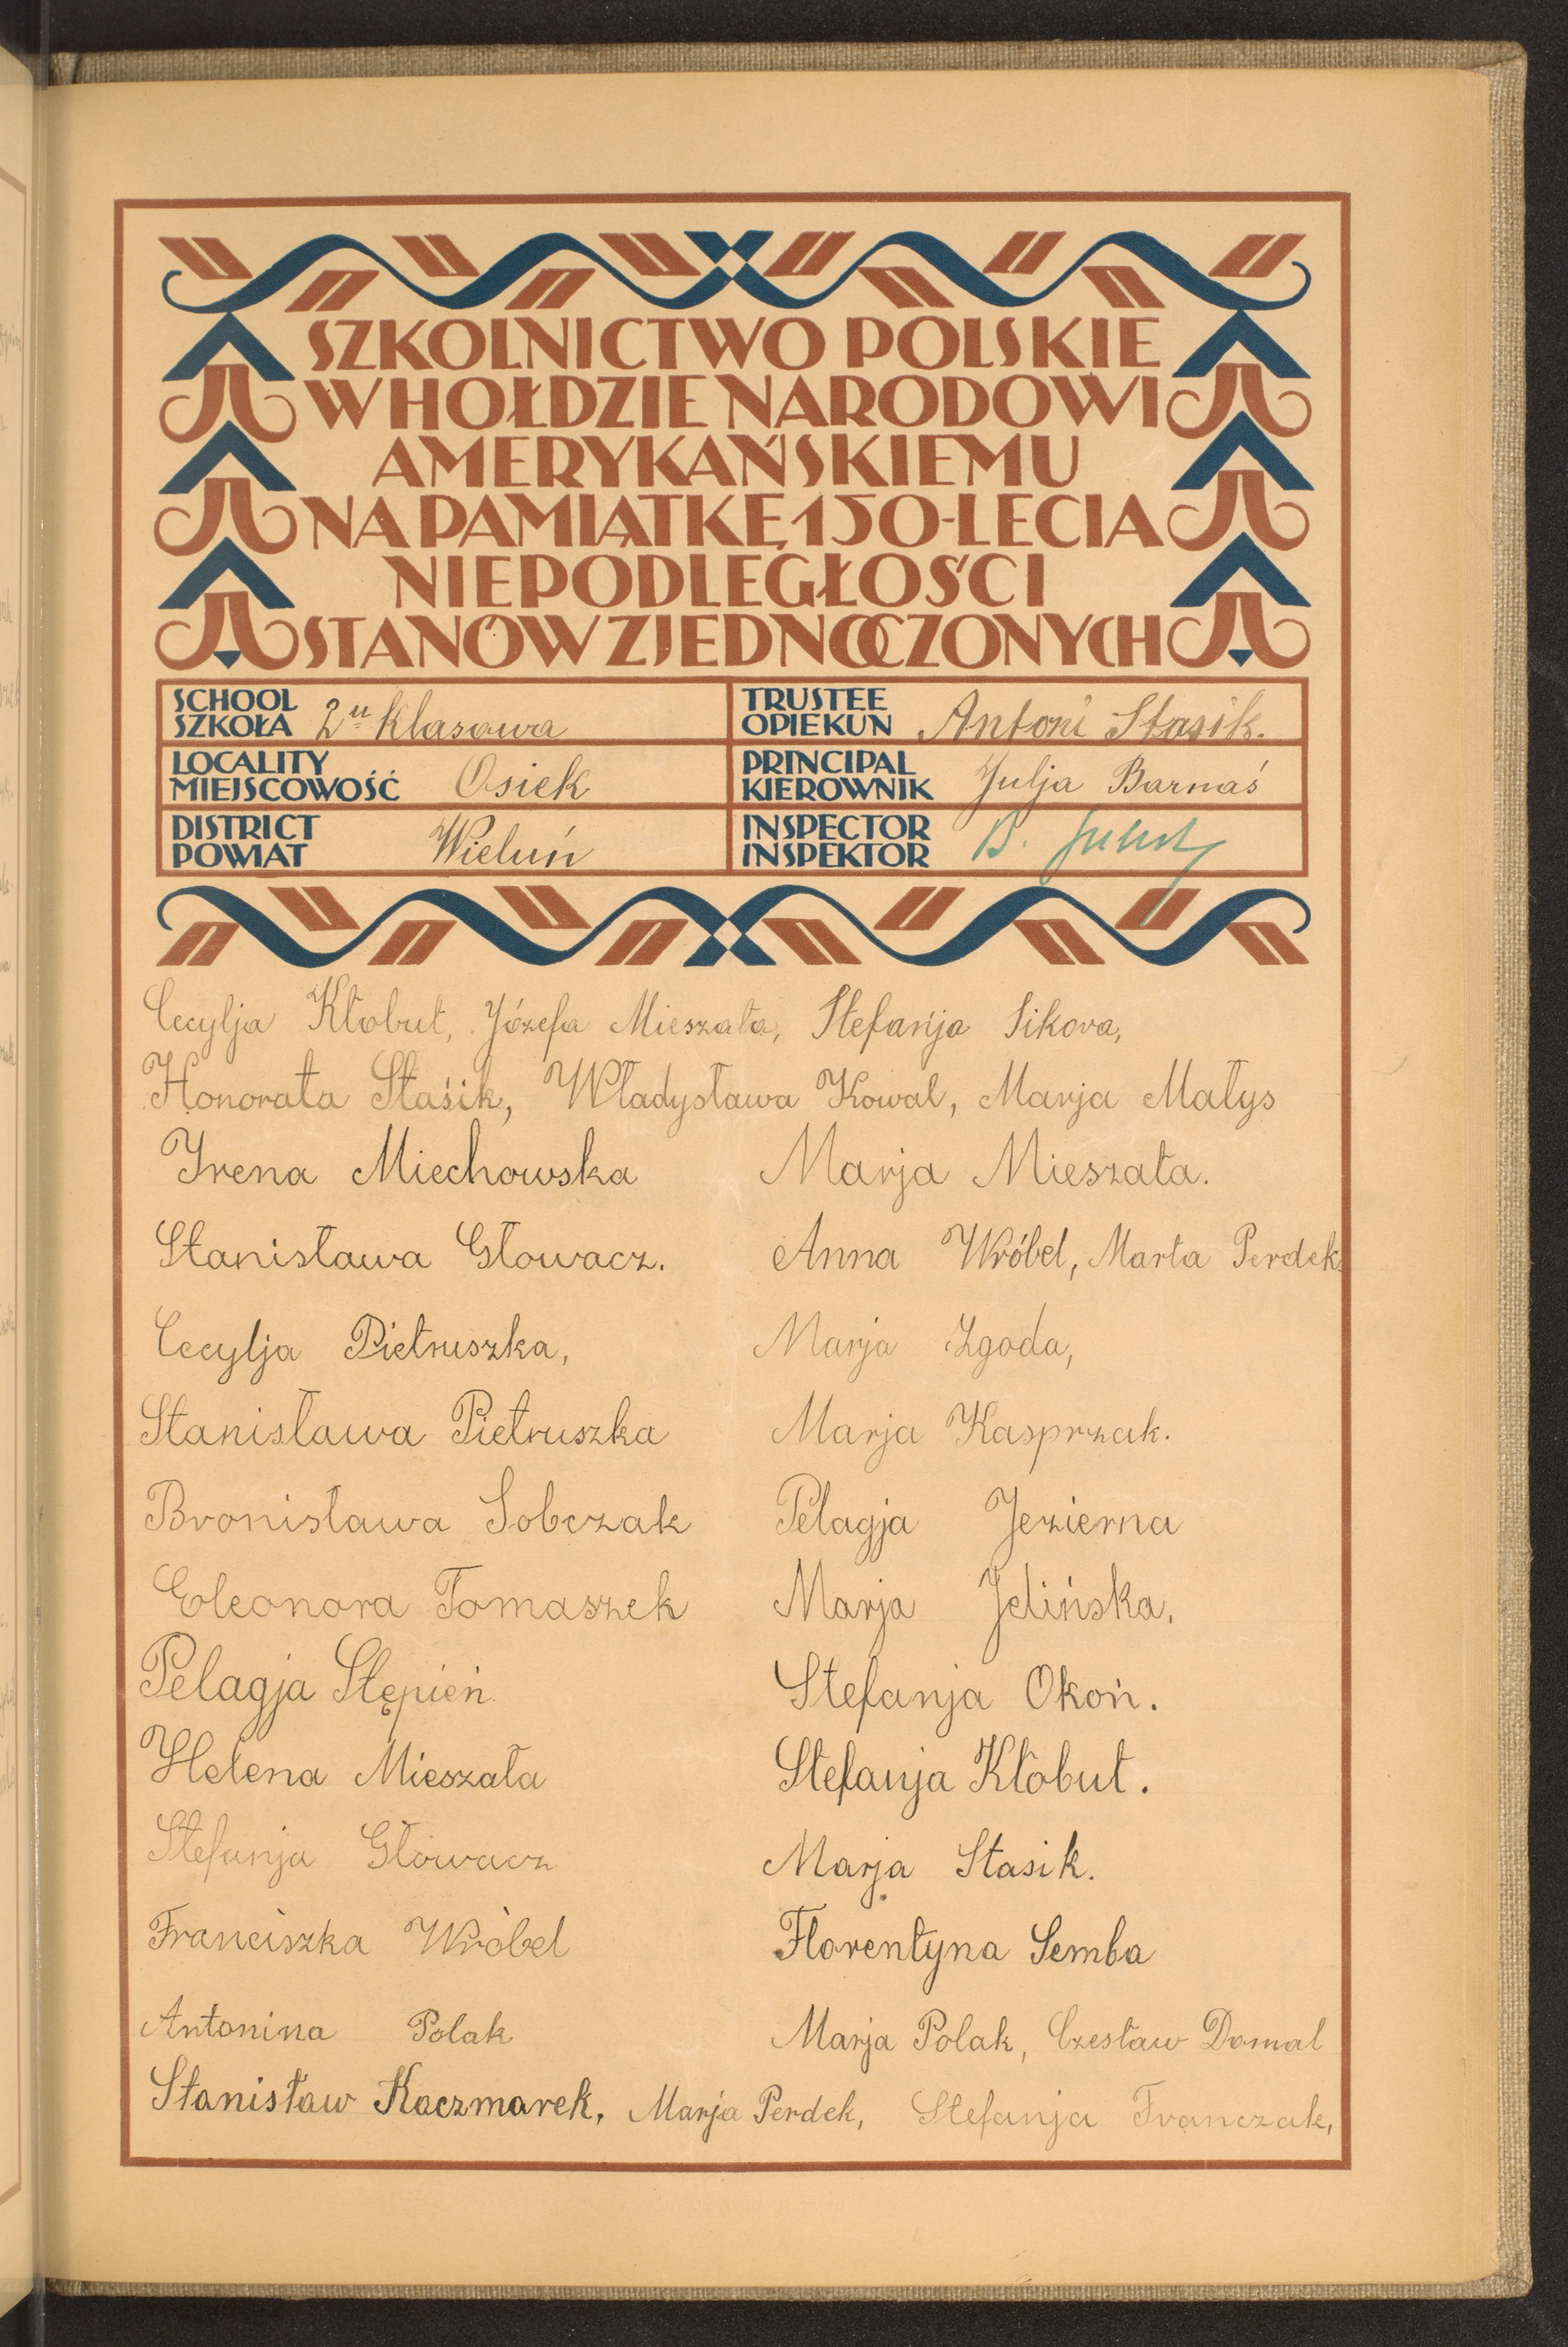 SZKOLNICTWO POLSKIE
W HOŁDZIE NARODOWI
AMERYKAŃSKIEMU
NA PAMIĄTKĘ 150-LECIA
NIEPODLEGŁOŚCI
STANÓW ZJEDNOCZONYCH
SCHOOL
SZKOŁA 2u klasowa
TRUSTEE
OPIEKUN Antoni Stasik.
LOCALITY
MIEJSCOWOŚĆ Osiek
PRINCIPAL
KIEROWNIK Julja Barnaś
DISTRICT
POWIAT Wieluń
INSPECTOR
INSPEKTOR B.
Cecylja Kłobut, Józefa Mieszała, Stefanja Sikora,
Honorata Stasik, Władysława Kowal, Marja Małys
Yrena Miechowska Marja Mieszała.
Stanisława Głowacz. Anna Wróbel, Marta Perdek.
Cecylja Pietruszka, Marja Zgoda,
Stanisława Pietruszka Marja Kasprzak.
Bronisława Sobczak Pelagja Jezierna
Eleonora Tomaszek Marja Jelińska.
Pelagja Stępień Stefanja Okoń.
Helena Mieszała Stefanja Kłobut.
Stefanja Głowacz Marja Stasik.
Franciszka Wróbel Florentyna Semba
Antonina Polak Marja Polak, Czesław Domal
Stanisław Kaczmarek, Marja Perdek, Stefanja Franczak,